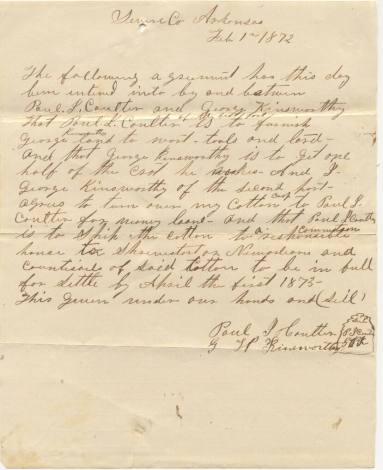 Sevier Co Arkansas
Feb 1st 1872
The following agreement has this day
been intered into by and between
Paul. S. Coulter and George Kinsworthy
That Paul S. Coulter is to furnish
George Kinsworthy land to work - tools and
And that George Kinsworthy is to get one
half of the he makes - And I
George Kinsworthy of the second part -
agree to turn over my Cotton Crop to Paul S.
Coulter for money - and that Paul S Coulter
is to Ship the cotton to a Commission
house to Shreveport or New and
of Said Cotton to be in full
for settle by April the first 1873 -
This given under our hands and (Seal)
Paul S Coulter
G Kinsworthy